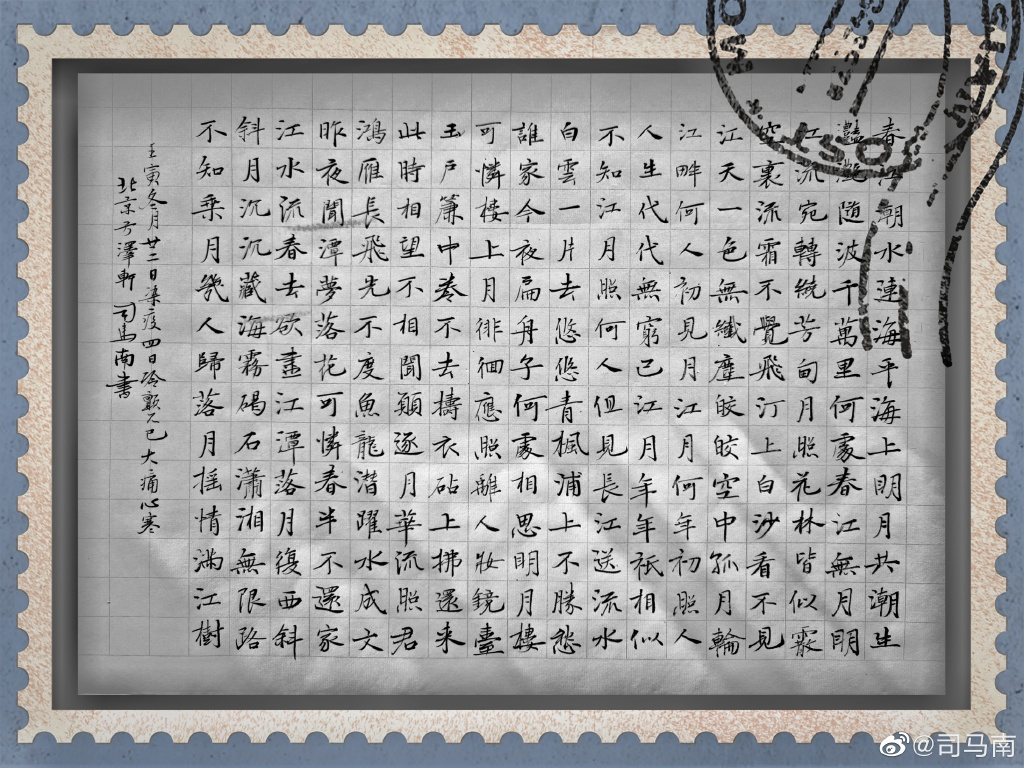 春江潮水連海平海上明月共潮生
灩灩随波千萬里何處春江無月明
江流宛轉繞芳甸月照花林皆似霰
空裏流霜不覺飛汀上白沙看不見
江天一色無纖塵皎皎空中孤月輪
江畔何人初見月江月何年初照人
人生代代無窮已江月年年祇相似
不知江月照何人但見長江送流水
白雲一片去悠悠青楓浦上不勝愁
誰家今夜扁舟子何處相思明月樓
可憐樓上月徘徊應照離人妝鏡臺
玉戶簾中卷不去擣衣砧上拂還来
此時相望不相聞願逐月華流照君
鴻雁長飛先不度魚龍潜躍水成文
昨夜聞潭夢落花可憐春半不還家
江水流春去欲盡江潭落月復西斜
斜月沉沉藏海霧碣石瀟湘無限路
不知乘月幾人歸落月摇情滿江樹
壬寅冬月廿二日染疫四日冷顫不已大痛心寒
北京方澤軒司馬南書
@司马南